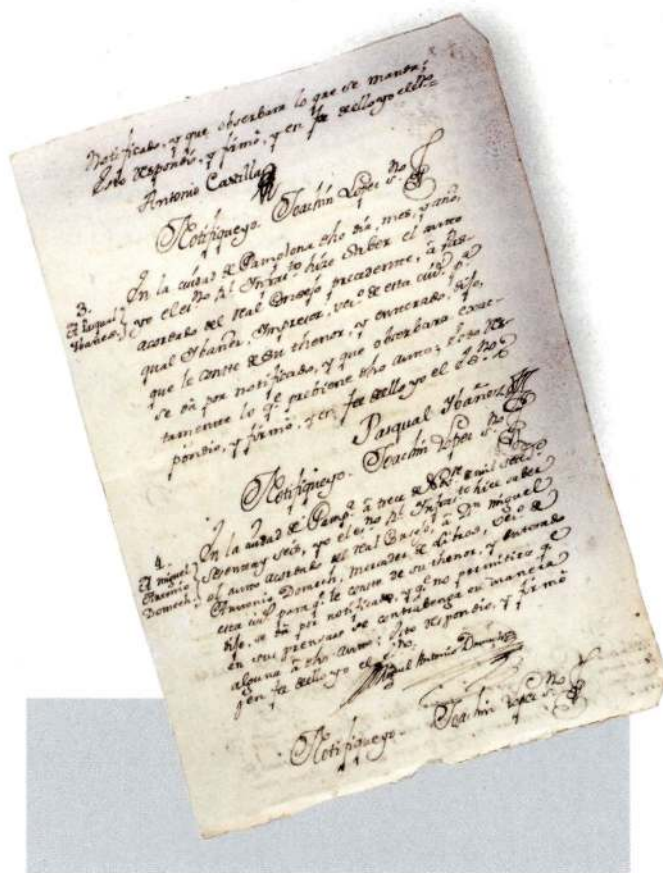 Notificado, y que observara lo que se manda;
Esto respondió, y firmó, y en fee de ello yo el SSno=
Antonio Castilla
Notifiqueyo. Joachin Lopez S.no
3.
A Pasqual
Ibañez.
En la ciudad de Pamplona dho dia, mes, y año,
yo el es.no R.l Infras.to hize saber el auto
acordado del Real Consejo precedente, à Pas-
qual Ibañez, Impresor, vec.o de esta ciud.d p.a
que le conste de su thenor, y enterado, dijo,
se dà por notificado, y que observara exac-
tamente lo q.e previene dho auto; Esto res-
pondio, y firmó, y en fee de ello yo el S.no
Pasqual Ibañez
Notifiqueyo. Joachin Lopez S.no
4.
A Miguel
Antonio
Domech.
En la ciudad de Pamp.a à trece de de mil setec.s
Sesenta y seis, yo el es.no R.l Infras.to hize saber
el auto acordado del Real Consejo, à Dn Miguel
Antonio Domech, Mercader de Libros, vec.o de
esta ciu.d para q.e le conste de su thenor, y enterado
dijo, se dà por notificado, y q.e no permitirà q.e
en sus prensas se contrabenga en manera
alguna à dho auto: Esto respondio, y firmó
y en fee de ello yo el S.no
Miguel Antonio Domech
Notifiqueyo. Joachin Lopez S.no